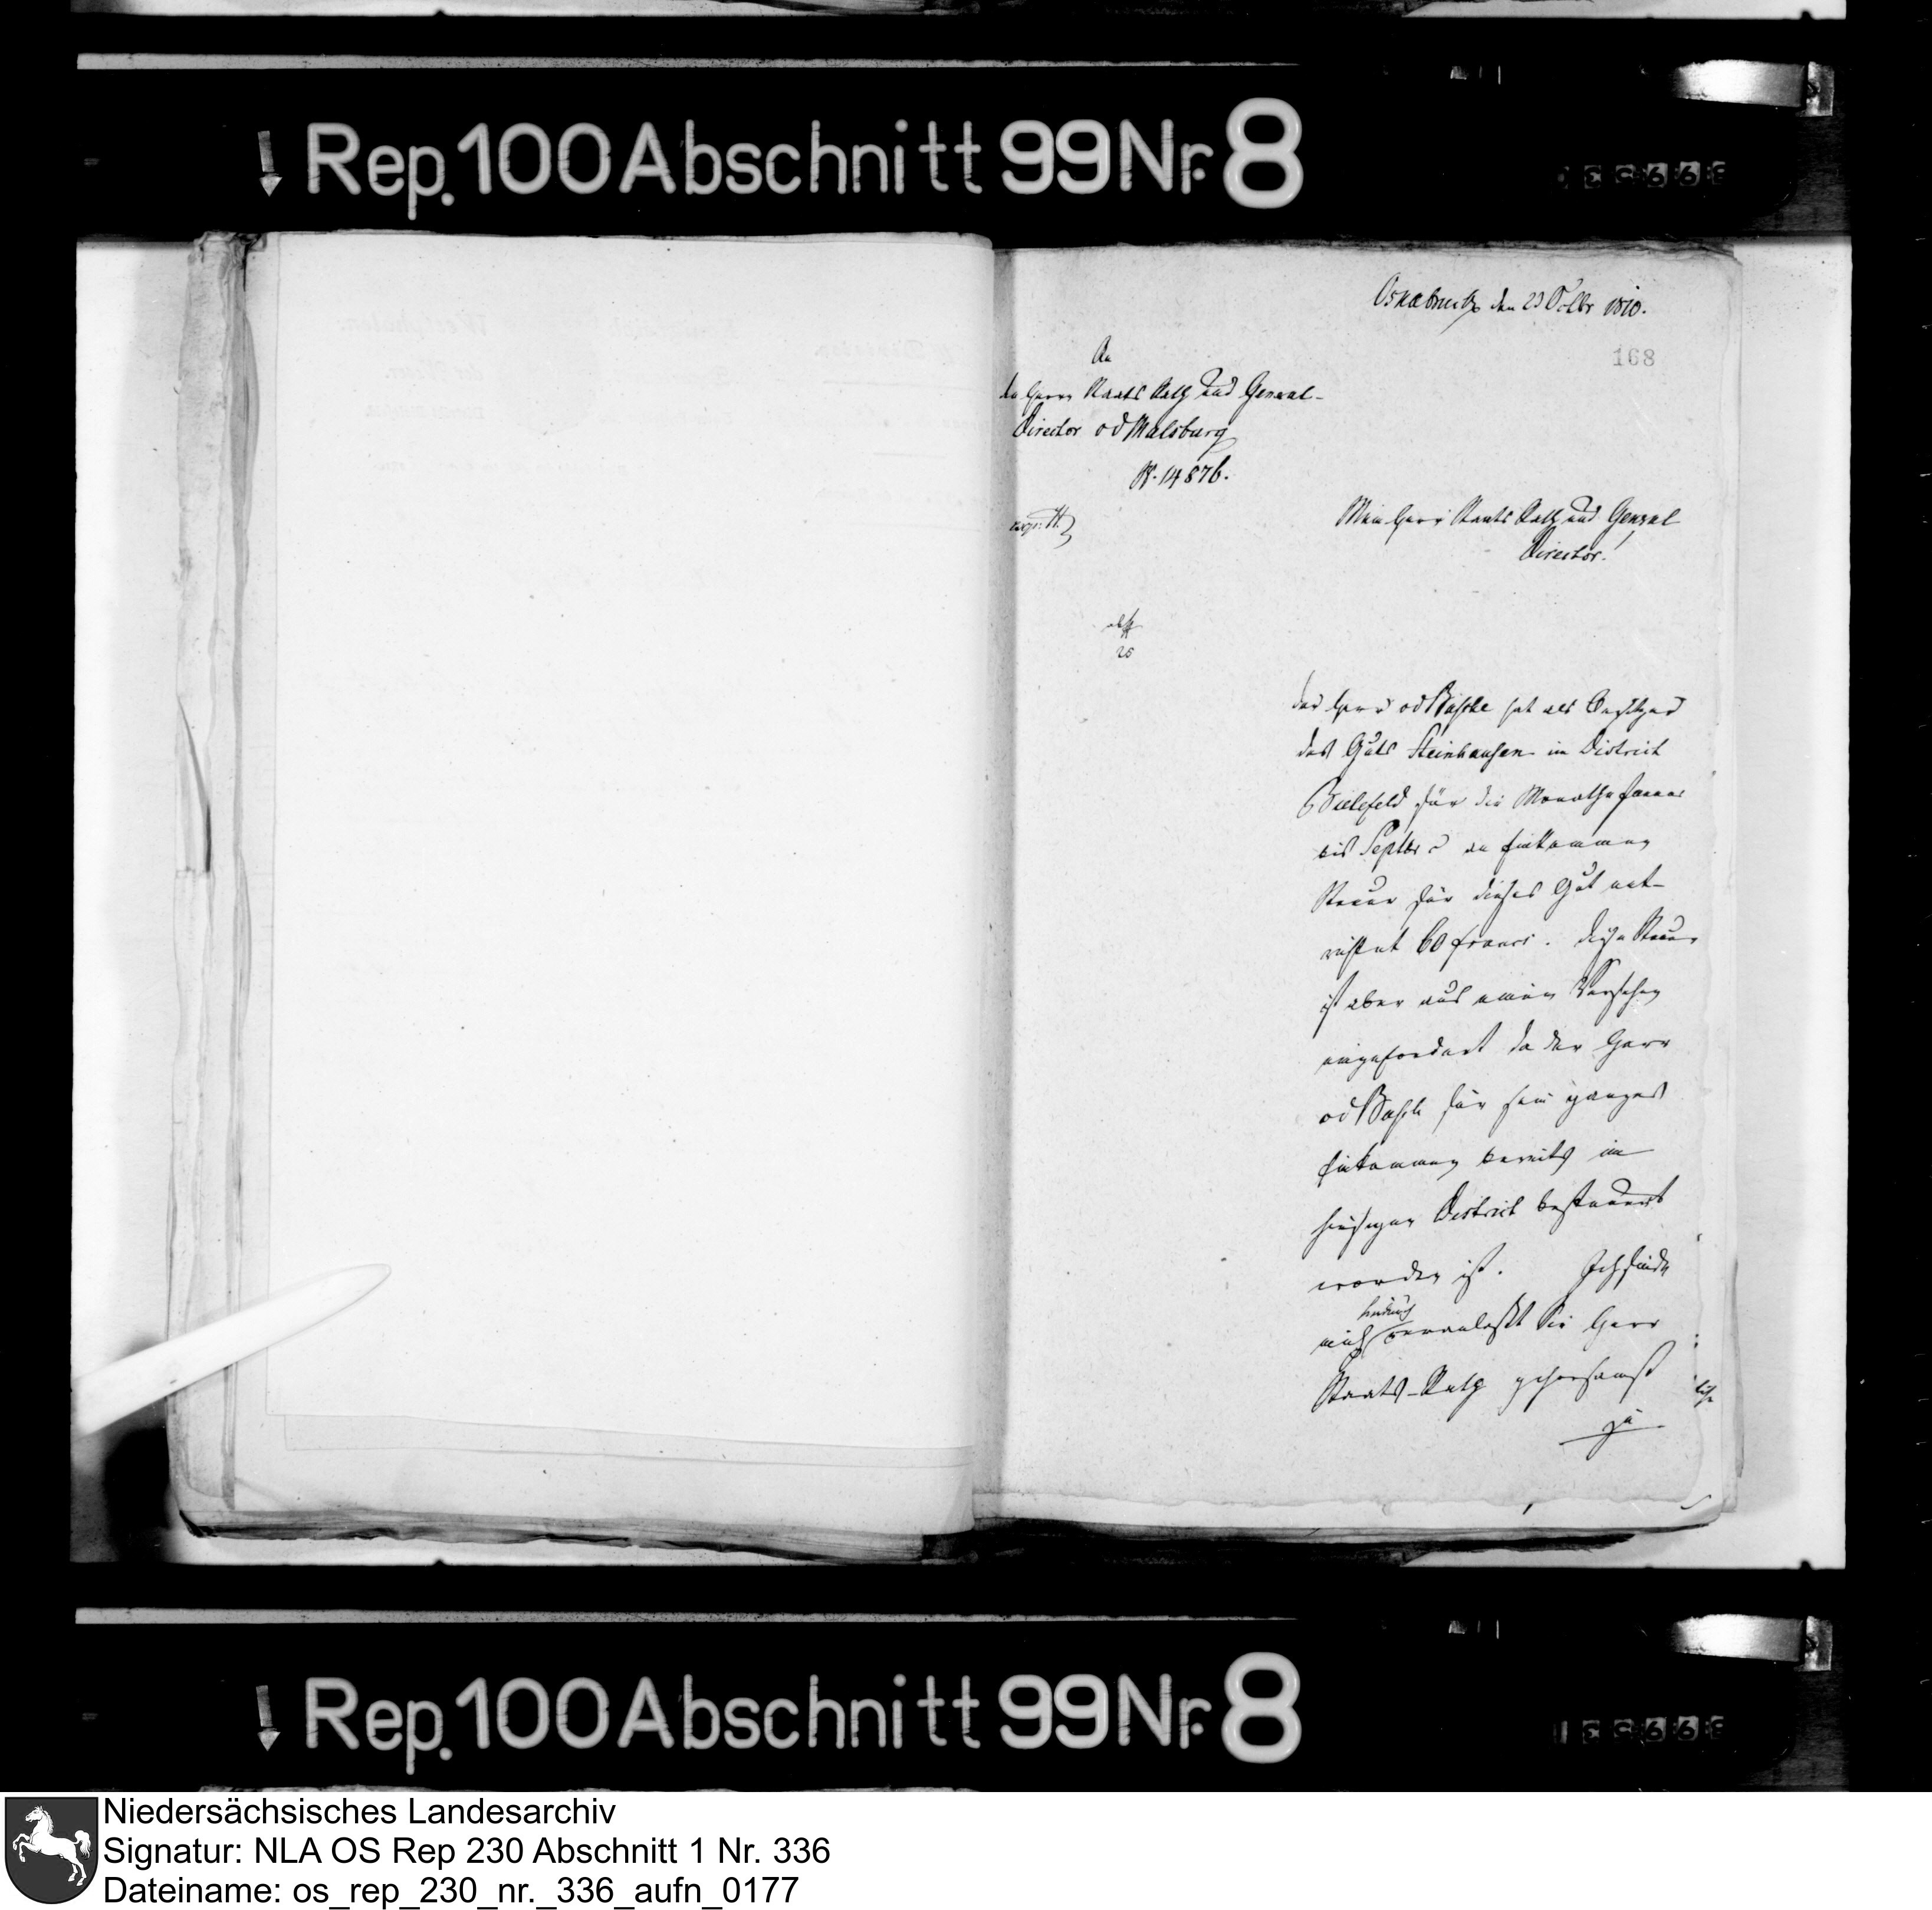 Rep. 100 Abschnitt 99 Nr 8
Osnabrück den 23 Octbr 1810.
168
An
den Herrn Staats Rath und General-
Director v d Malsburg
N. 14876.
Mein Herr Staats Rath und General
Director!
abs
25
Der Herr v d Busche hat als Besitzer
des Guts Steinhausen im District
Bielefeld für die Monathe Januar
bis Septbr an Einkommen
Steuer für dieses Gut ent-
richtet 60 francs. Diese Steuer
ist aber aus einem Versehen
eingefordert da der Herr
v d Busche für sein ganzes
Einkommen bereits im
hiesigen District besteuert
worden ist. Ich finde
hiedurch
mich veranlaßt Sie Herr
Staats-Rath gehorsamst
zu
Rep. 100 Abschnitt 99 Nr 8
Niedersächsisches Landesarchiv
Signatur: NLA OS Rep 230 Abschnitt 1 Nr. 336
Dateiname: os_rep_230_nr._336_aufn_0177